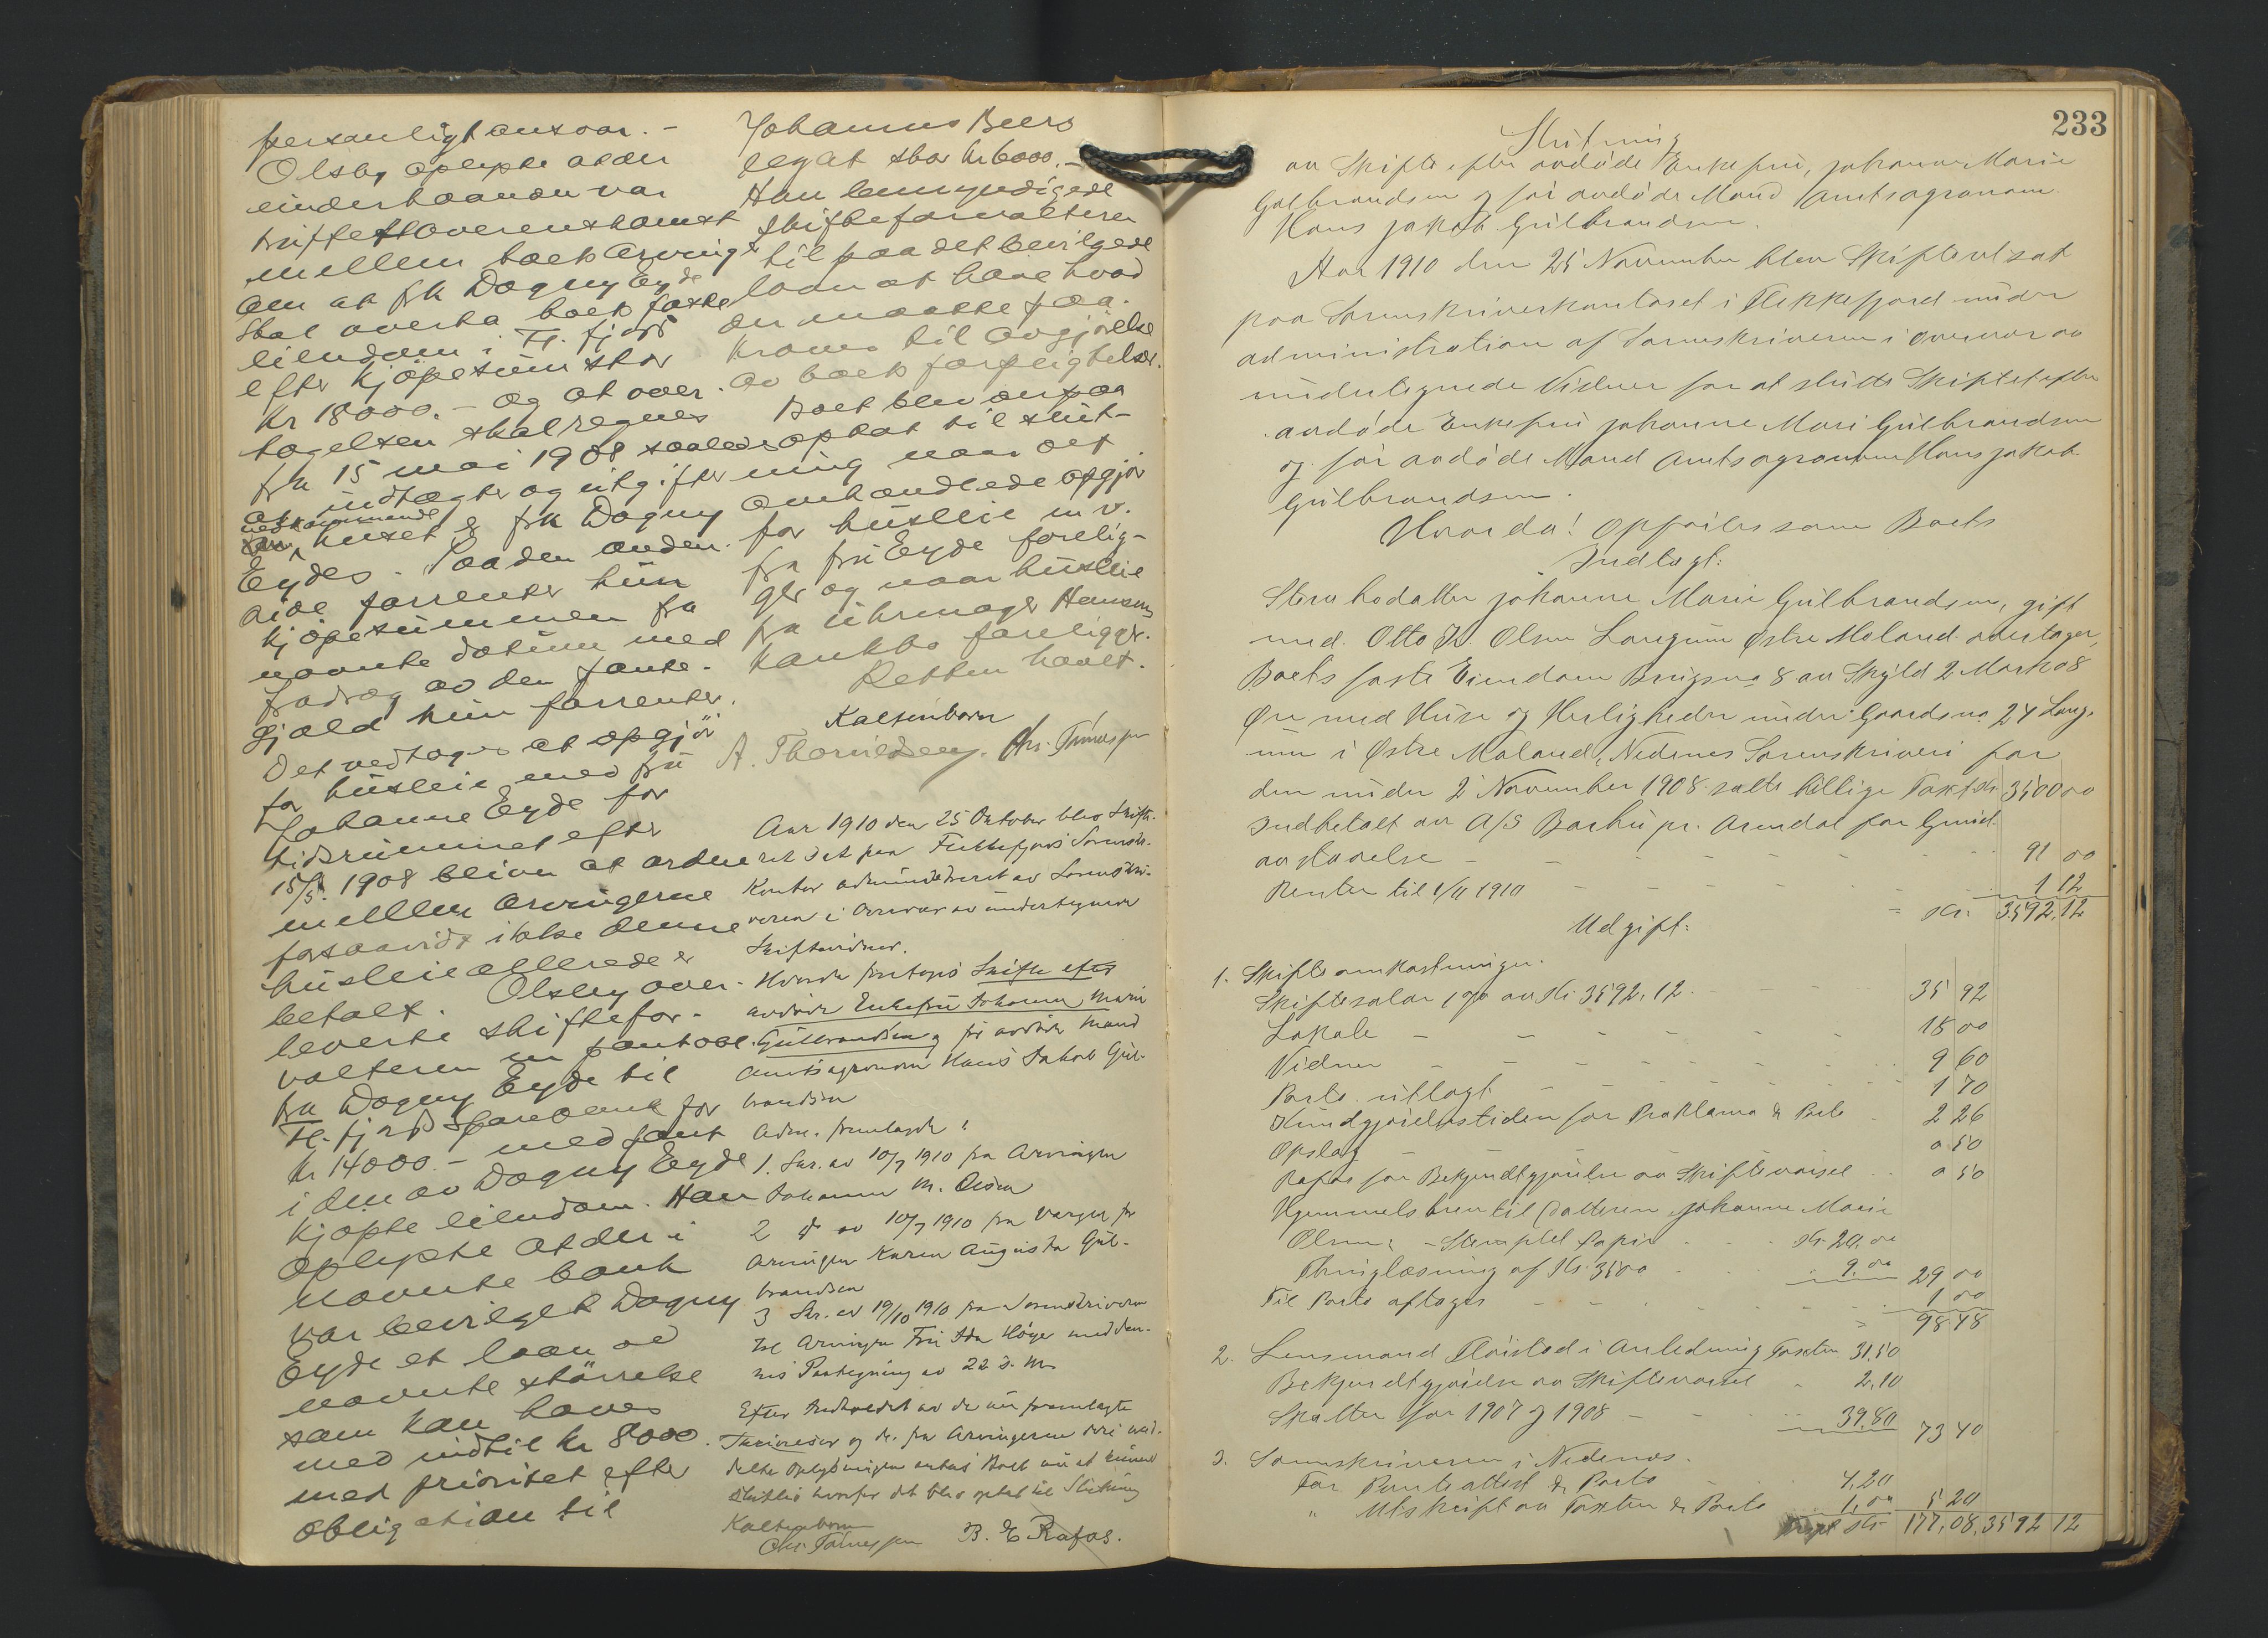 personligt ansvar. –
Olsby oplyste at der
underhaanden var
truffet overenskomst
mellem boets arvinger
om at frk Dagny Eyde
skal overta boets faste
eiendom i Fl. fjord
efter kjøpesum stor
kr 18000.- og at over-
tagelsen skal regnes
fra 15 mai 1908 saaledes
at indtægter og utgifter
vedkommende
huset er frk Dagny
Eydes. Paa den anden
side forrenter hun
kjøpesummen fra
nævnte datum med
fradrag av den pante-
gjæld hun forrenter.
Det vedtoges at opgjør
for husleie med fru
Johanne Eyde for
tidsrummet efter
15/5 1908 bliver at ordne
mellem arvingerne
forsaavidt ikke denne
husleie allerede er
betalt. Olsby over-
leverte skiftefor-
valteren en pantobl.
fra Dagny Eyde til
Fl. fjords Sparebank for
kr 14000.- med pant
i den av Dagny Eyde
kjøpte eiendom. Han
oplyste at der i
nævnte bank
var bevilget Dagny
Eyde et laan av
nævnte størrelse
som kan haves
med indtil kr 8000.
med prioritet efter
obligation til
Johannes Beers
legat stor kr 6000.-
Han bemyndigede
skifteforvalteren
til paa det bevilgede
laan at hæve hvad
der maatte fra-
kræves til avgjørelse
av boets forpligtelser.
Boet blev derpaa
optat til slut-
ning naar det
omhandlede opgjør
for husleie m v.
fra fru Eyde forelig-
ger og naar husleie
fra uhrmager Hansens
konkbo foreligger.
Retten hævet.
Kaltenborn
A. Thorvildsen. Chr. Tønnessen
Aar 1910 den 25 Oktober blev Skifte-
ret sat paa Flekkefjords Sorenskr.
Kontor administreret av Sorenskri-
veren i overvær av undertegnede
Skiftevidner.
Hvorda foretoges Skifte efter
avdøde Enkefru Johanne Marie
Gulbrandsen og før avdøde Mand
Amtsagronom Hans Jakob Gul-
brandsen
Adm. fremlagde:
1. Skr. av 10/7 1910 fra Arvingen
Johanne M. Olsen
2 do av 10/7 1910 fra Vergen for
Arvingen Karen Augusta Gul-
brandsen
3 Skr. av 19/10 1910 fra Sorenskriveren
til Arvingen Fru Ida Høyer med den-
nes Paategning av 22 d. M.
Efter Indholdet av de nu fremlagte
Skrivelser og de fra Arvingerne deri med-
delte Oplysninger antas Boet nu at kunne
sluttes hvorfor det blev optat til Slutning
Kaltenborn
Chr. Tønnessen B. E Rafos.
233
Slutning
av Skifte efter avdøde Enkefru, Johanne Marie
Gulbrandsen og før avdøde Mand Amtsagronom
Hans Jakob Gulbrandsen.
Aar 1910 den 25 November blev Skifteret sat
paa Sorenskriverkontoret i Flekkefjord under
administration af Sorenskriveren i overvær av
undertegnede Vidner for at slutte Skiftet efter
avdøde Enkefru Johanne Marie Gulbrandsen
og før avdøde Mand Amtsagronom Hans Jakob
Gulbrandsen.
Hvorda! opføres som Boets
Indtægt:
Steru bodatter Johanne Marie Gulbrandsen, gift
med Otto Olsen Langum Østre Moland overtager
Boets faste Eiendom Brugsno 8 av Skyld 2 Mark 08
Øre med Huse og Herligheder under Gaardsno 24 Lang-
um i Østre Moland, Nedenes Sorenskriveri for
den under 2 November 1908 satte billige Takst kr 3500 00
Indbetalt av A/S Barbu pr. Arendal for Grund-
avstaaelse - - - - - 91 00
Renter til 1/11 1910 - - - - - 1 12
Kr. 3592.12
Udgift:
1. Skifteomkostninger.
Skiftesalær 1 % av Kr. 3592.12 - - 35 92
Lokale - - - - - 18 00
Vidner - - - - - 9 60
Porto utlagt - - - - - 1 70
Kundgjørelsestiden for Proklama & Porto - 2 26
Opslag 0 50
Rafos for Bekjendtgjørelse av Skiftevarsel - 0 50
Hjemmelsbrev til Datteren Johanne Marie
Olsen, - Stemplet Papir - - Kr. 20.00
Thinglæsning af Kr. 3500 - - 9.00 29 00
Til Porto aftages - - - - 1 00
98 48
2. Lensmand Fløistad i Anledning Taxten 31.50
Bekjendtgjørelse av Skiftevarsel - 2.10
Skatter for 1907 og 1908 - - 39.80 73 40
3. Sorenskriveren i Nedenes.
For Panteattest & Porto - 4.20
" Utskrift av Taxten & Porto 1.00 5 20
Transport Kr. 177.08. 3592 12